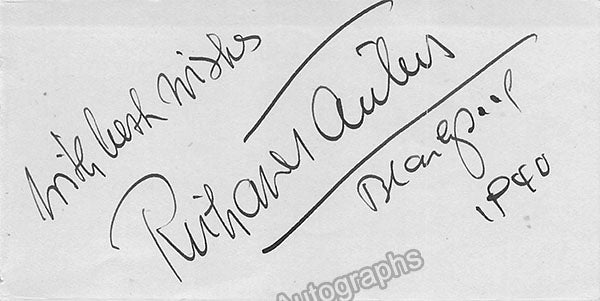 With best wishes
Richard Tauber
Blackpool
1940
Autographs